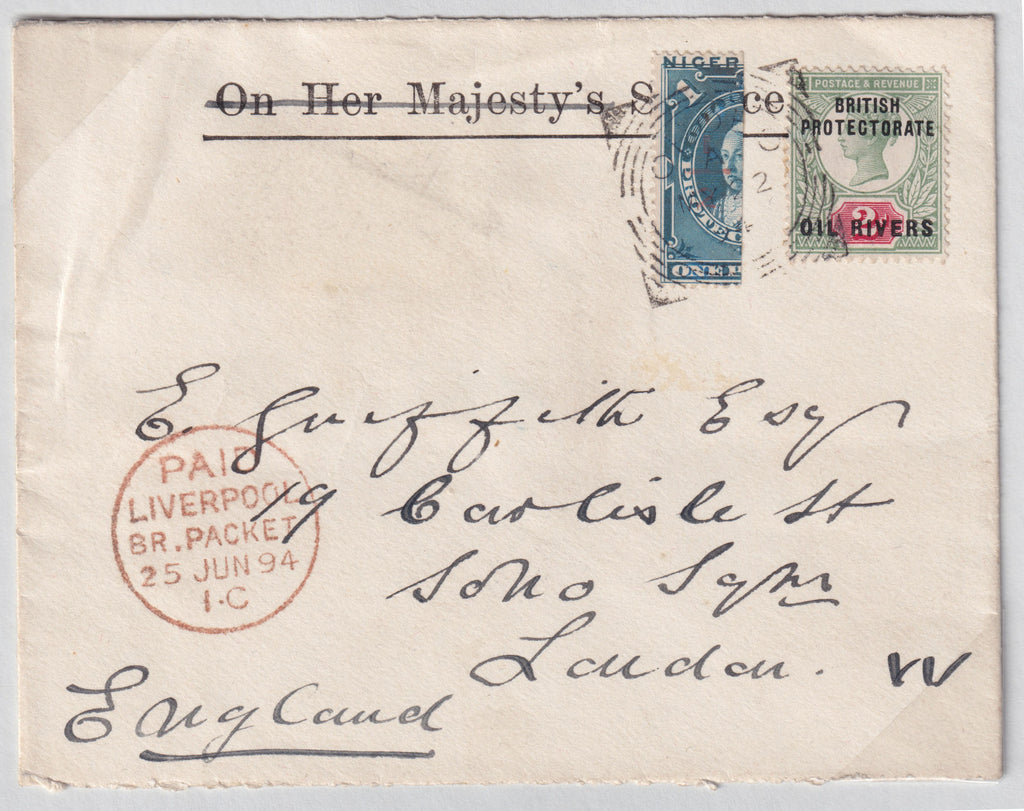 On Her Majesty's S ce
NIGER
1
PROTE
ONE P
POSTAGE & REVENUE
BRITISH
PROTECTORATE
2d
OIL RIVERS
E. Griffith Esqr
19 Carlisle St
Soho Sqre
London. W
England
PAID
LIVERPOOL
BR. PACKET
25 JUN 94
1·C